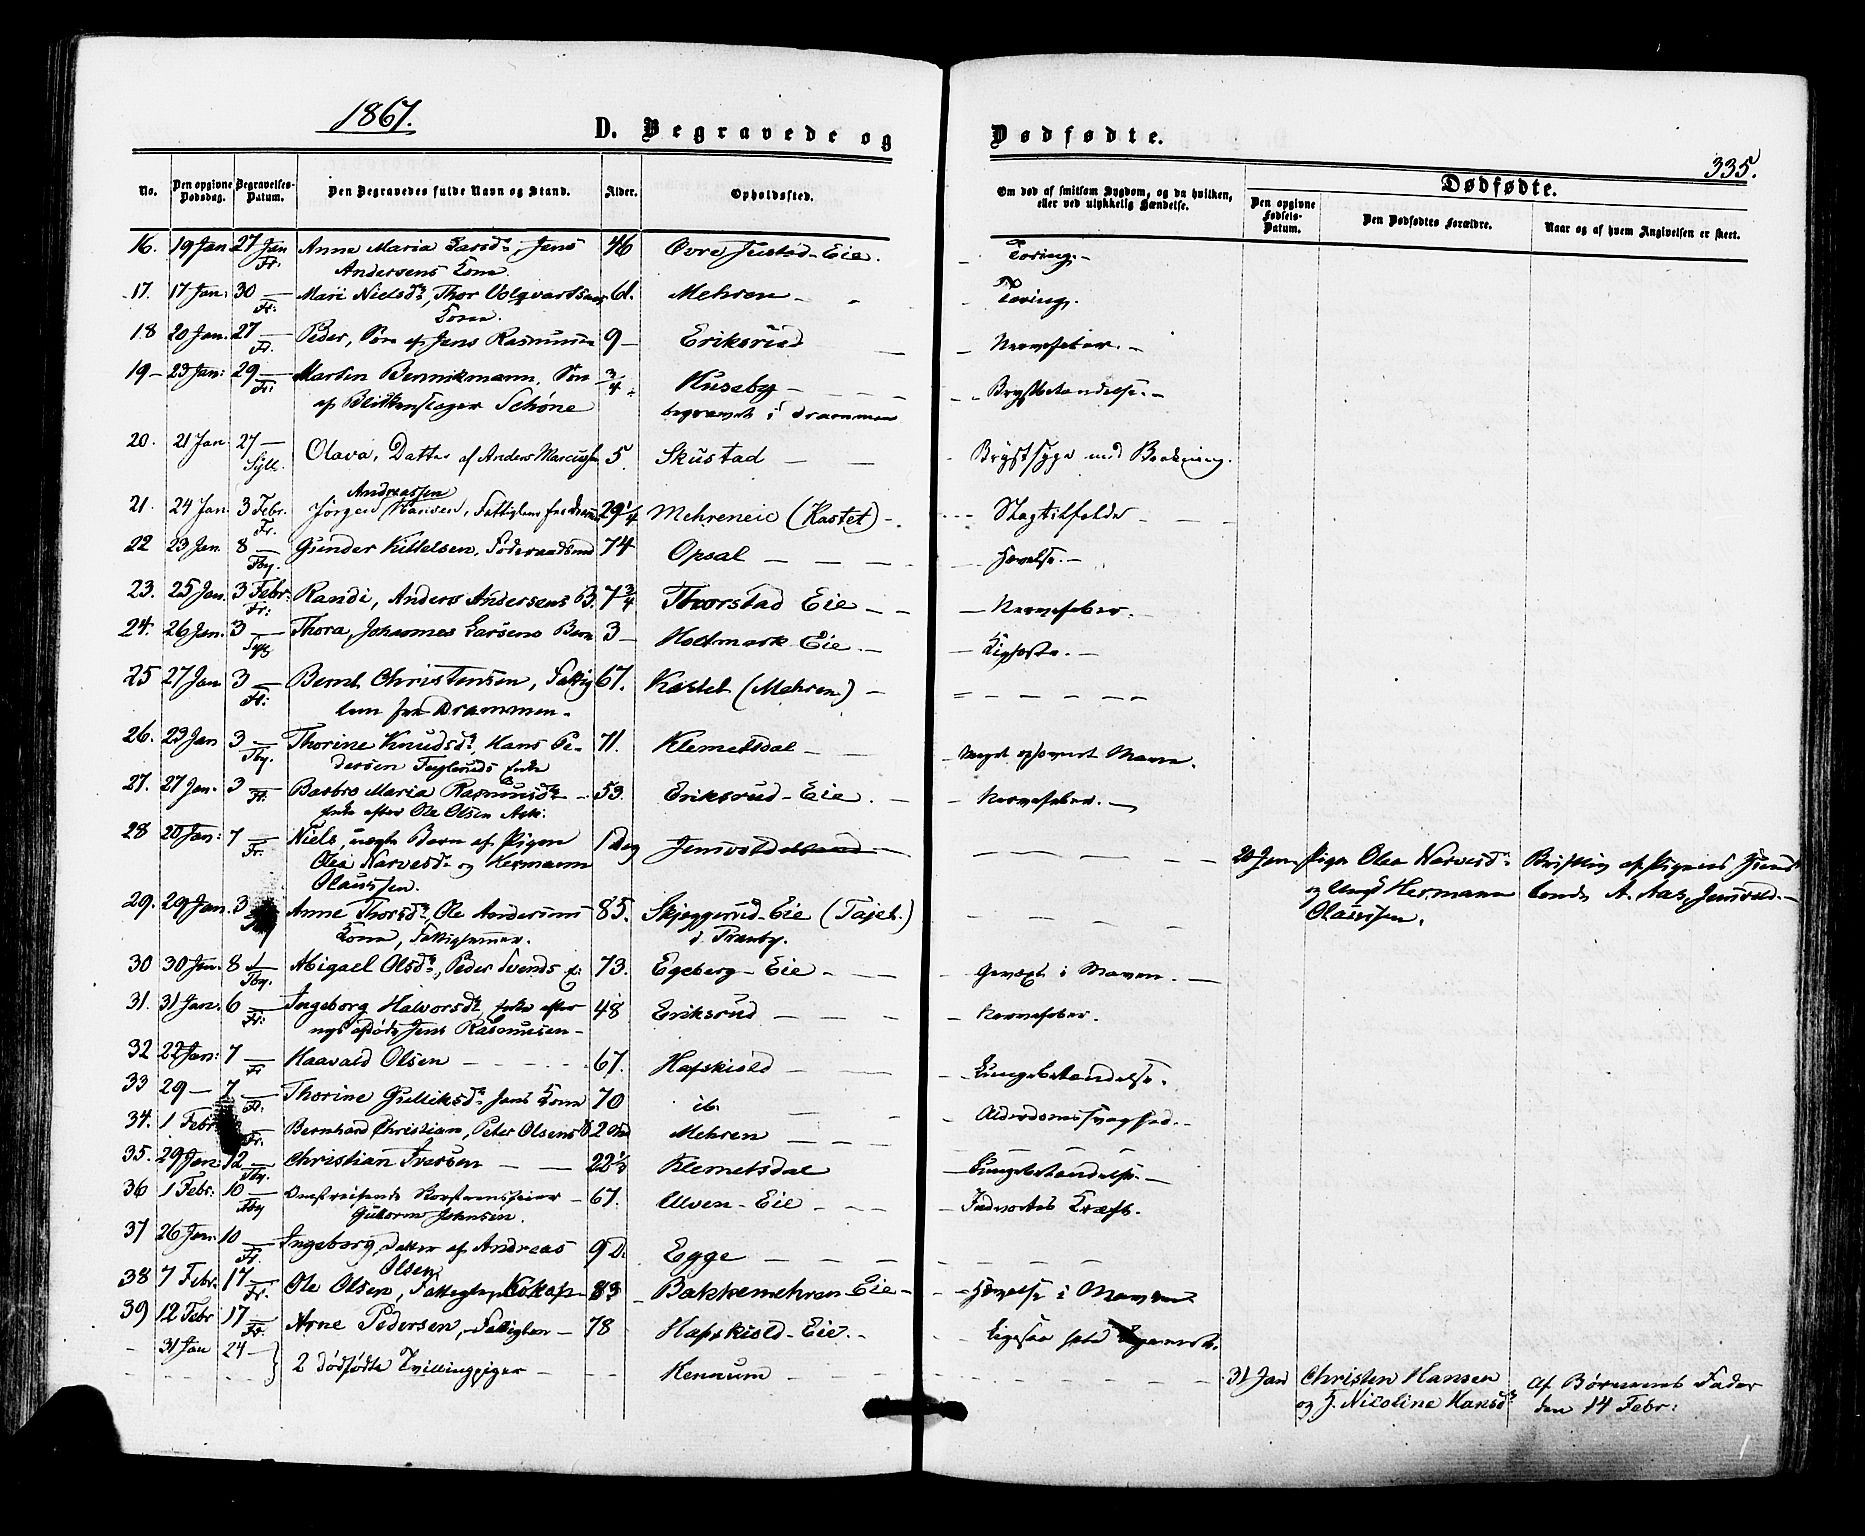 1867.
D. Begravede og
Dødfødte.
335.
No. Den opgivne Dødsdag. Begravelses-Datum. Den Begravedes fulde Navn og Stand. Alder. Opholdssted. Om død af smitsom Sygdom, og da hvilken, eller ved ulykkelig Hændelse. Dødfødte.
Den opgivne Fødsels-Datum. Den Dødfødtes Forældre. Naar og af hvem Angivelsen er skeet.
16. 19 Jan 27 Jan Anne Maria Larsd:, Jens 46 Øvre Justad-Eie. – Tæring. –
Fr: Andersens Kone.
17. 17 Jan: 30 — Mari Nielsd:, Thor Volqvartsens 61. Mehren – – Tæring.
Fr: Kone.
18 20 Jan. 27 — Peder, Søn af Jens Rasmussen 9 – Eriksrud – – Nervefeber. –
Fr.
19 – 23 Jan: 29 — Morten Bennikmann, Søn 3/4 Huseby – – Brystbetændelse. –
Fr: af Blikkenslager Schøne begravet i Drammen
20. 21 Jan. 27 — Olava, Datter af Anders Marcussen 5. Skustad – – Brystsyge med Brækning.
Syll.
Andreassen
21. 24 Jan. 3 Febr. Jørgen Hansen, Fattiglem fra Dramn 29 1/4 Mehreneie (Kastet) – Slagtilfælde – – –
Fr.
22 23 Jan. 8 — Gunder Kittelsen, Føderaadsmd 74 Opsal – – – – Hævelse. –
Tby.
23. 25 Jan. 3 Febr: Randi, Anders Andersens B. 7 3/4 Thorstad Eie – – – Nervefeber. –
Fr:
24. 26 Jan. 3 — Thora, Johannes Larsens Barn 3 – Holtmark Eie. – – Kighoste. –
Syll
25 27 Jan 3 — Bernt Christensen, Fattig 67. Kastet (Mehren) – – – – – – –
Fr: lem fra Drammen.
26. 23 Jan 3 — Thorine Knudsd:, Hans Pe- 71. Klemetsdal – – – Meget ophovnet Maven.
Tby. dersen Enke
27. 27 Jan. 3 — Barbro Maria Rasmusd: – 53. Eriksrud-Eie. – – Nervefeber. –
Fr. Enke efter Ole Olsen Ask.
28 20 Jan: 7 — Niels, uægte Barn af Pigen 1 Dag Jensvold – – – – – 20 Jan. Pige Olea Narvesd: af Pigens Huus
Fr. Olea Narvesd: og Hermann og Ungk Hermann bonde A. Aas, Jensvold. –
Olaussen. Olaussen.
29. 29 Jan. 3 Anne Thorsd:, Ole Andersens 85. Skjeggerud-Eie (Tajet.) – – – –
Kone, Fattiglemmer. d. Tranby.
30 30 Jan. 8 — Abigael Olsd:, Peder Svends E: 73. Egeberg – Eie – – – Gevæxt i Maven. –
Tby.
31. 31 Jan. 6 — Ingeborg Halvorsd: Enke efter 48 Eriksrud – – – Nervefeber.
Fr: nys afdøde Jens Rasmussen –
32 22 Jan: 7 — Haavald Olsen – – – 67. Hafskiold – – – Lungebetændelse.
Fr
33 29 – 7 — Thorine Gulliksd: Jens Kone 70 ib. – – Alderdomssvaghed. –
Fr.
34. 1 Febr Bernhard Christian, Peter Olsens B 2 Mehren – – – – – –
Fr.
35. 29 Jan 12 — Christian Iversen – – 22 1/3 Klemetsdal – Lungebetændelse. –
Tby.
36 1 Febr: 10 — Omstreifende Skorsteensfeier – 67. Ulven – Eie – – – Indvortes Kræft.
Tby Guttorm Johnsen.
37 26 Jan: 10 — Ingeborg, Datter af Andreas 9 D. Egge – – – – – – –
Fr. Olsen
38 7 Febr. 17 — Ole Olsen, Fattiglem, 83 Bakkemehren-Eie – – Hævelse i Maven.
Fr.
39 12 Febr 17 — Arne Pedersen, Fattiglem – 78 Hafskiold-Eie. – – Ligesaa
Fr.
– 31 Jan 24 – 2 dødfødte Tvillingpiger – Kennum – – – – – – 31 Jan Christen Hansen Af Børnenes Fader
og J. Nicoline Hansd: den 14 Febr: